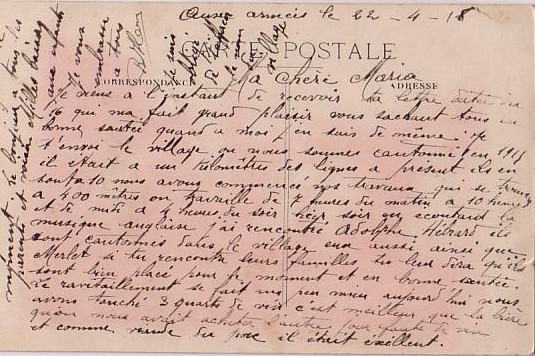 Aux armées le 22-4-18
CARTE POSTALE
CORRESPONDANCE
ADRESSE
Ma Chère Maria
Je viens à l'instant de recevoir ta lettre datée du
16 qui ma fait grand plaisir vous sachant tous en
bonne santée quand a moi j'en suis de même. Je
t'envoi le village ou nous sommes cantonné en 1915
il était a un kilomètres des lignes a present ils en
sont a 10 nous avons commencé nos travaux qui se trouve
a 400 mètres on travaille de 7 heures du matin a 10 heures
et de midi a 4 heures du soir hier soir en écoutant la
musique anglaise j'ai rencontré Adolphe Hérard ils
sont cantonnés dans le village eux aussi ainsi que
Merlet si tu rencontre leurs familles tu leur dira qu'ils
sont bien placé pour le moment et en bonne santée.
Le ravitaillement se fait un peu mieu aujourd'hui nous
avons touché 3 quarts de vin c'est meilleur que la bière
qu'on nous avait acheter l'autre jour faute de vin
et comme viande du porc il était exellent.
Je vous
embrasse
a tous
Je suis
village